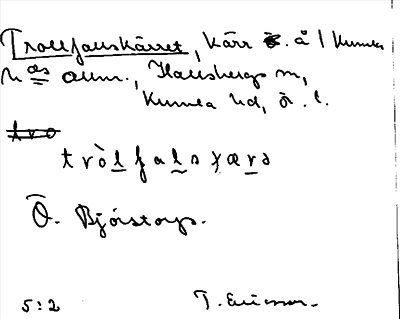 Trollfallskärret, kärr ö. å /Kumla
n as allm., Hallsbergs sn,
Kumla hd, Ö. l.
tro
tròlfalsxærə
Ö. Björstorp.
5:2 T. Ericsson.